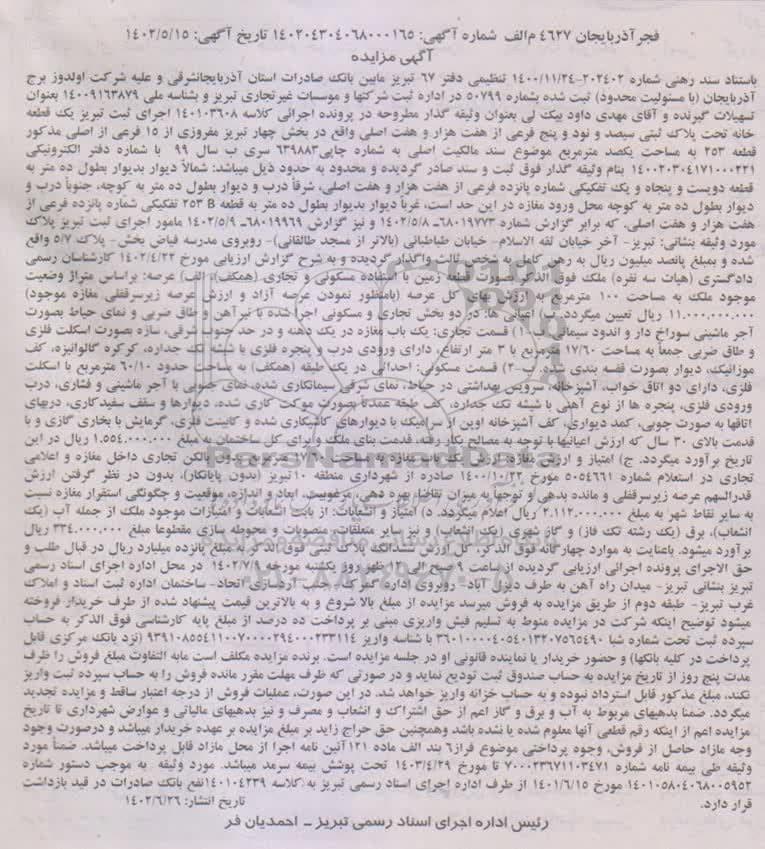 فجر آذربایجان ٤٦٢٧ م‌الف شماره آگهی: ١٤٠٢٠٤٣٠٤٠٦٨٠٠٠١٦٥ تاریخ آگهی: ١٤٠٢/٥/١٥
آگهی مزایده
باستناد سند رهنی شماره ٢٠٢٤٠٢-١٤٠٠/١١/٢٤ تنظیمی دفتر ٦٧ تبریز مابین بانک صادرات استان آذربایجانشرقی و علیه شرکت اولدوز برج
آذربایجان (با مسئولیت محدود) ثبت شده بشماره ٥٠٧٩٩ در اداره ثبت شرکتها و موسسات غیرتجاری تبریز و بشناسه ملی ١٤٠٠٩١٦٣٨٧٩ بعنوان
تسهیلات گیرنده و آقای مهدی داود بیک لی بعنوان وثیقه گذار مطروحه در پرونده اجرائی کلاسه ١٤٠١٠٣٦٠٨ اجرای ثبت تبریز یک قطعه
خانه تحت پلاک ثبتی سیصد و نود و پنج فرعی از هفت هزار و هفت اصلی واقع در بخش چهار تبریز مفروزی از ١٥ فرعی از اصلی مذکور
قطعه ٢٥٣ به مساحت یکصد مترمربع موضوع سند مالکیت اصلی به شماره چاپی ٦٣٩٨٨٣ سری ب سال ٩٩ با شماره دفتر الکترونیکی
١٤٠٠٢٠٣٠٤١٧١٠٠٠٢٢١ بنام وثیقه گذار فوق ثبت و سند صادر گردیده و محدود به حدود ذیل میباشد: شمالاً دیوار بدیوار بطول ده متر به
قطعه دویست و پنجاه و یک تفکیکی شماره پانزده فرعی از هفت هزار و هفت اصلی، شرقاً درب و دیوار بطول ده متر به کوچه، جنوباً درب و
دیوار بطول ده متر به کوچه محل ورود مغازه در این حد است، غرباً دیوار بدیوار بطول ده متر به قطعه ٢٥٣ B تفکیکی شماره پانزده فرعی از
هفت هزار و هفت اصلی. که برابر گزارش شماره ٦٨٠١٩٧٧٣ـ ١٤٠٢/٥/٨ و نیز گزارش ٦٨٠١٩٩٦٩ـ ١٤٠٢/٥/٩ مامور اجرای ثبت تبریز پلاک
مورد وثیقه بنشانی: تبریز- آخر خیابان ثقة الاسلام- خیابان طباطبائی (بالاتر از مسجد طالقانی)- روبروی مدرسه فیاض بخش- پلاک ٥/٧ واقع
شده و بمبلغ پانصد میلیون ریال به رهن کامل به شخص ثالث واگذار گردیده و به شرح گزارش ارزیابی مورخ ١٤٠٢/٤/٢٢ کارشناسان رسمی
دادگستری (هیات سه نفره) ملک فوق الذکر بصورت قطعه زمین با استفاده مسکونی و تجاری (همکف)، الف) عرصه: براساس متراژ وضعیت
موجود ملک به مساحت ١٠٠ مترمربع به ارزش بهای کل عرصه (بامنظور نمودن عرصه آزاد و ارزش عرصه زیرسرقفلی مغازه موجود)
١١.٠٠٠.٠٠٠.٠٠٠ ریال تعیین میگردد. ب) اعیانی ها: در دو بخش تجاری و مسکونی اجرا شده با تیرآهن و طاق ضربی و نمای حیاط بصورت
آجر ماشینی سوراخ دار و اندود سیمانی، ب-١) قسمت تجاری: یک باب مغازه در یک دهنه و در حد جنوب شرقی، سازه بصورت اسکلت فلزی
و طاق ضربی جمعاً به مساحت ١٧/٦٠ مترمربع با ٣ متر ارتفاع، دارای ورودی درب و پنجره فلزی با شیشه تک جداره، کرکره گالوانیزه، کف
موزائیک، دیوار بصورت قفسه بندی شده. ب-٢) قسمت مسکونی: احداثی در یک طبقه (همکف) به مساحت حدود ٦٠/١٠ مترمربع با اسکلت
فلزی، دارای دو اتاق خواب، آشپزخانه، سرویس بهداشتی در حیاط، نمای شرقی سیمانکاری شده، نمای جنوبی با آجر ماشینی و فشاری، درب
ورودی فلزی، پنجره ها از نوع آهنی با شیشه تک جداره، کف طبقه عمدتاً بصورت موکت کاری شده، دیوارها و سقف سفیدکاری، دربهای
اتاقها به صورت چوبی، کمد دیواری، کف آشپزخانه اوپن از سرامیک با دیوارهای کاشیکاری شده و کابینت فلزی، گرمایش با بخاری گازی و با
قدمت بالای ٣٠ سال که ارزش اعیانیها با توجه به مصالح بکار رفته، قدمت بنای ملک و برای کل ساختمان به مبلغ ١.٥٥٤.٠٠٠.٠٠٠ ریال در این
تاریخ برآورد میگردد. ج) امتیاز و ارزش مغازه: ارزش یک باب مغازه به مساحت ١٧/٦٠ مترمربع بالکن تجاری داخل مغازه و اعلامی
تجاری در استعلام شماره ٥٠٥٤٦٦١ مورخ ١٤٠٠/١٠/٢٢ صادره از شهرداری منطقه ١٠ تبریز (بدون پایانکار)، بدون در نظر گرفتن ارزش
قدرالسهم عرصه زیرسرقفلی و مانده بدهی و توجهاً به میزان تقاضا، بهره دهی، مرغوبیت، ابعاد و اندازه، موقعیت و چگونگی استقرار مغازه نسبت
به سایر نقاط شهر به مبلغ ٢.١١٢.٠٠٠.٠٠٠ ریال اعلام میگردد. د) امتیاز و انشعابات: از بابت انشعابات و امتیازات موجود ملک از جمله آب (یک
انشعاب)، برق (یک رشته تک فاز) و گاز شهری (یک انشعاب) و نیز سایر متعلقات، منصوبات و محوطه سازی مقطوعا مبلغ ٣٣٤.٠٠٠.٠٠٠ ریال
برآورد میشود. باعنایت به موارد چهارگانه فوق الذکر، کل ارزش ششدانگ پلاک ثبتی فوق الذکر به مبلغ پانزده میلیارد ریال در قبال طلب و
حق الاجرای پرونده اجرائی ارزیابی گردیده از ساعت ٩ صبح الی ١٢ ظهر روز یکشنبه مورخه ١٤٠٢/٧/٩ در محل اداره اجرای اسناد رسمی
تبریز بنشانی تبریز- میدان راه آهن به طرف دیزل آباد- روبروی اداره گمرک- جنب اردسازی اتحاد- ساختمان اداره ثبت اسناد و املاک
غرب تبریز- طبقه دوم از طریق مزایده به فروش میرسد مزایده از مبلغ بالا شروع و به بالاترین قیمت پیشنهاد شده از طرف خریدار فروخته
میشود توضیح اینکه شرکت در مزایده منوط به تسلیم فیش واریزی مبنی بر پرداخت ده درصد از مبلغ پایه کارشناسی فوق الذکر به حساب
سپرده ثبت تحت شماره شبا ٣٦٠١٠٠٠٠٤٠٥٤٠١٣٢٠٧٥٦٥٤٩٠ با شناسه واریز ٩٣٩١٠٨٥٥٤١١٠٠٧٠٠٠٠٢٩٤٠٠٠٢٣٣١١٤ (نزد بانک مرکزی قابل
پرداخت در کلیه بانکها) و حضور خریدار یا نماینده قانونی او در جلسه مزایده است. برنده مزایده مکلف است مابه التفاوت مبلغ فروش را ظرف
مدت پنج روز از تاریخ مزایده به حساب صندوق ثبت تودیع نماید و در صورتی که ظرف مهلت مقرر مانده فروش را به حساب سپرده ثبت واریز
نکند، مبلغ مذکور قابل استرداد نبوده و به حساب خزانه واریز خواهد شد. در این صورت، عملیات فروش از درجه اعتبار ساقط و مزایده تجدید
میگردد. ضمنا بدهیهای مربوط به آب و برق و گاز اعم از حق اشتراک و انشعاب و مصرف و نیز بدهیهای مالیاتی و عوارض شهرداری تا تاریخ
مزایده اعم از اینکه رقم قطعی آنها معلوم شده یا نشده باشد وهمچنین حق حراج زاید بر مبلغ مزایده بر عهده خریدار میباشد و درصورت وجود
وجه مازاد حاصل از فروش، وجوه پرداختی موضوع فراز٦ بند الف ماده ١٢١آئین نامه اجرا از محل مازاد قابل پرداخت میباشد. ضمناً مورد
وثیقه طی بیمه نامه شماره ٧٠٠٠٢٣٦٧١١٠٣٤٧١ تا مورخ ١٤٠٣/٤/٢٩ تحت پوشش بیمه سرمد میباشد. مورد وثیقه به موجب دستور شماره
١٤٠١٠٥٨٠٤٠٦٨٠٠٥٩٥٢ مورخ ١٤٠١/٦/١٥ از طرف اداره اجرای اسناد رسمی تبریز به کلاسه ١٤٠١٠٤٢٣٩نفع بانک صادرات در قید بازداشت
قرار دارد. تاریخ انتشار: ١٤٠٢/٦/٢٦
رئیس اداره اجرای اسناد رسمی تبریز ـ احمدیان فر
ParsNamadData